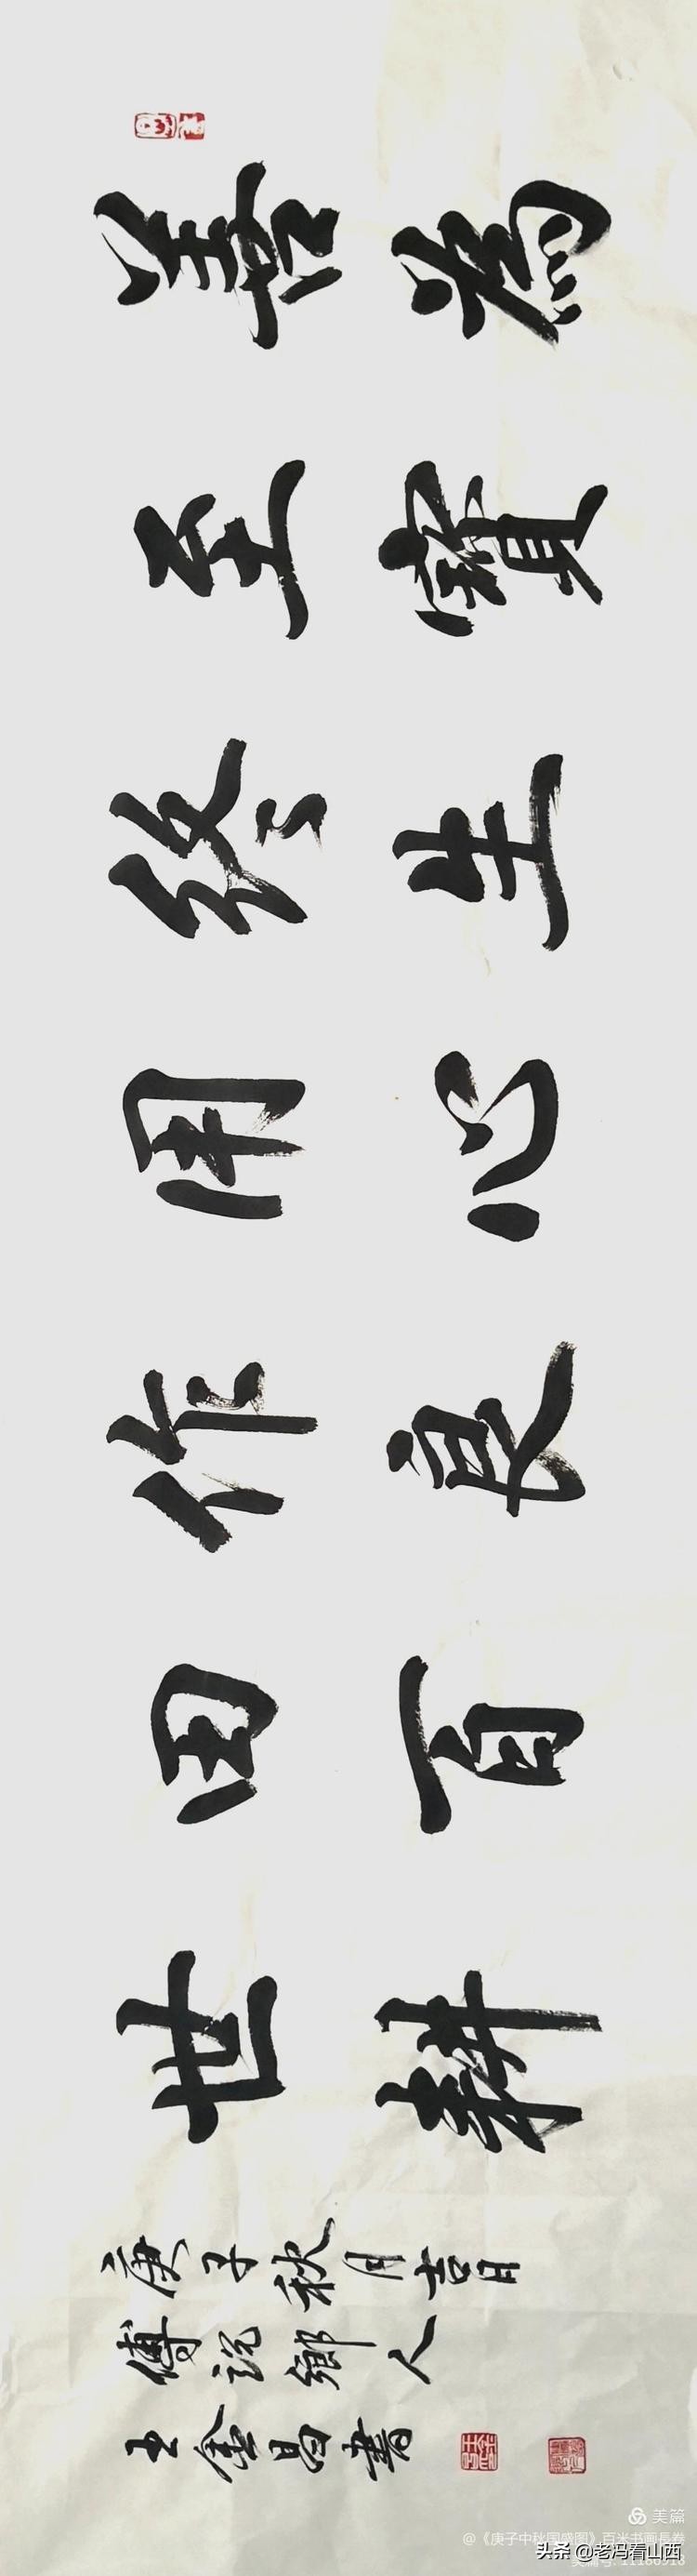 善為
至寶
終生
用心
作良
田百
世耕
庚子秋月吉日
傅説鄉人
王金昌書
美篇
@《庚子中秋国盛图》百米书画長卷
头条 @老冯看山西